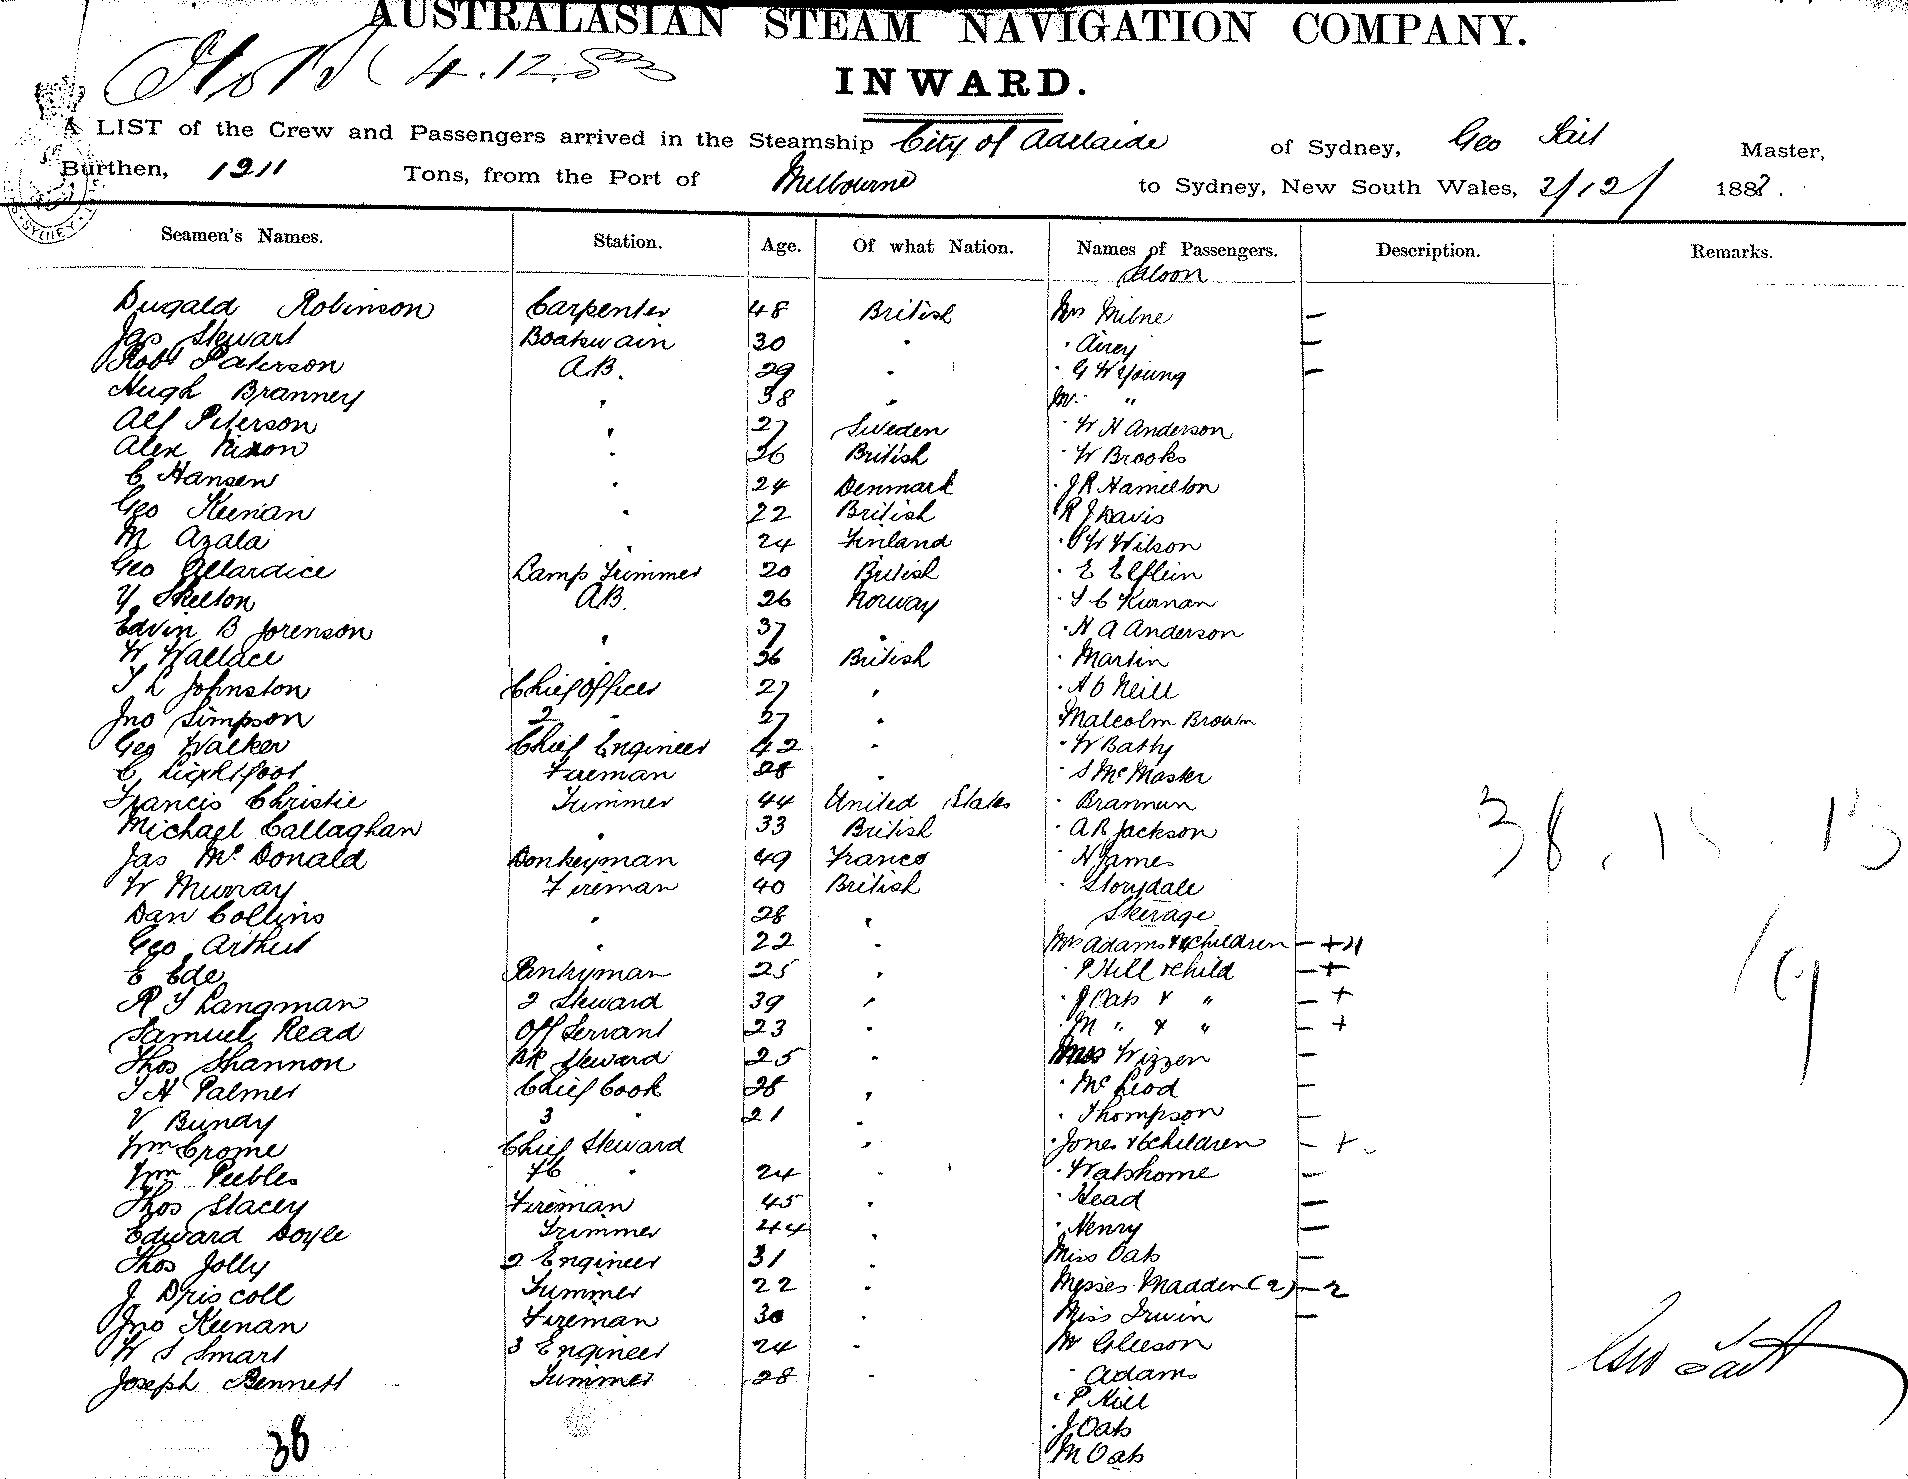 AUSTRALASIAN STEAM NAVIGATION COMPANY.
4.12.83
INWARD.
A LIST of the Crew and Passengers arrived in the Steamship City of Adelaide of Sydney, Geo Tait Master,
Burthen, 1211 Tons, from the Port of Melbourne to Sydney, New South Wales, 2/12/ 1883.
Seamen's Names. Station. Age. Of what Nation. Names of Passengers. Description. Remarks.
Saloon
Dugald Robinson Carpenter 48 British Mrs Milne —
Jas Stewart Boatswain 30 " " Airey —
Robt Paterson A.B. 29 " " G W Young —
Hugh Branney " 38 " Mr "
Alf Peterson " 27 Sweden " W H Anderson
Alex Nixon " 26 British " W Brooks
C Hansen " 24 Denmark " J R Hamilton
Geo Keenan " 22 British " R J Davis
M Azala " 24 Finland " W Wilson
Geo Allardice Lamp Trimmer 20 British " E Elflein
Y Skelton A.B. 26 Norway " T C Kiernan
Edvin B Jorenson " 37 " " H A Anderson
W Wallace " 36 British " Martin
T L Johnston Chief Officer 27 " " H O Neill
Jno Simpson 2 " 27 " " Malcolm Brown
Geo Walker Chief Engineer 42 " " W Batty
C Lightfoot Fireman 28 " " S McMaster
Francis Christie Trimmer 44 United States " Brannan
Michael Callaghan " 33 British " A R Jackson
Jas McDonald Donkeyman 49 France " H James
W Murray Fireman 40 British " Storydale
Dan Collins " 28 " Steerage
Geo Arthur " 22 " Mrs Adams & 4 children — + 4
E Ede Pantryman 25 " " P Hill & child — +
R T Langman 2 Steward 39 " " J Oats & " — +
Samuel Read Off Servant 23 " " M " & " — +
Thos Shannon BR Steward 25 " Mrs Wizzen —
T H Palmer Chief Cook 28 " " McLeod —
V Bundy 3 " 21 " " Thompson —
Wm Crome Chief Steward " " Jones & 6 children — +
Wm Peebles FC " 24 " " Watshome —
Thos Stacey Fireman 45 " " Head —
Edward Doyle Trimmer 44 " " Henry —
Thos Jolly 2 Engineer 31 " Miss Oats —
J Driscoll Trimmer 22 " Misses Madden (2) — 2
Jno Keenan Fireman 30 " Miss Irwin —
W S Smart 3 Engineer 24 " Mr Gleeson
Joseph Bennett Trimmer 28 " " Adams
" P Hill
" J Oats
" M Oats
38
38. 15. 13
19
Geo Tait